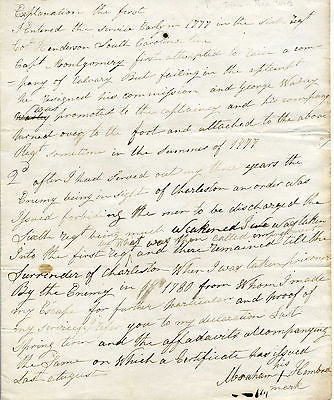 Explanation the first
I Entered the service Early in 1777 in the 6th Regt
Col Henderson South Carolina line
Capt. Montgomery first attempted to raise a com
pany of Calvary But failing in the attempt
he resigned his commission and George Waday
was promoted to the captaincy and his company
turned over to the foot and attached to the above
Regt sometime in the summer of 1777
2d after I had Served out three years the
Enemy being in sight of Charleston an order was
Issued forbiding the men to be discharged the
Sixth Regt being much weakened I was taken
Into the first Regt and there remained till the
Surrender of Charleston When I was taken Prisoner
By the Enemy in 1780 from Whom I made
my Escape for further particular and proof of
my services I refer you to my declaration Last
Spring term and the affadavits accompanying
the Same on which a Certificate has issued
Last August
his
Abraham
mark